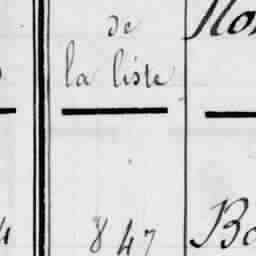 de
la liste
847